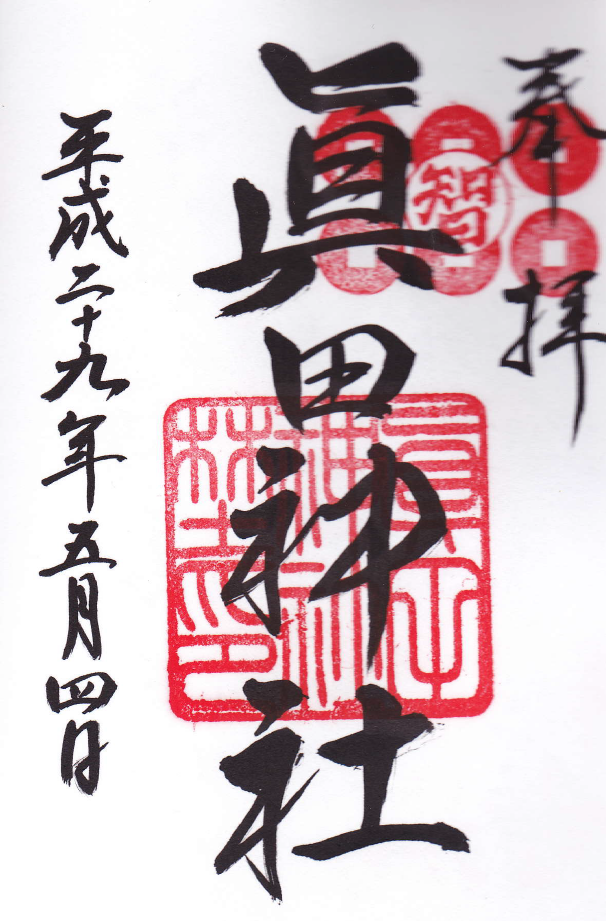 奉拝
智
眞田神社
平成二十九年五月四日